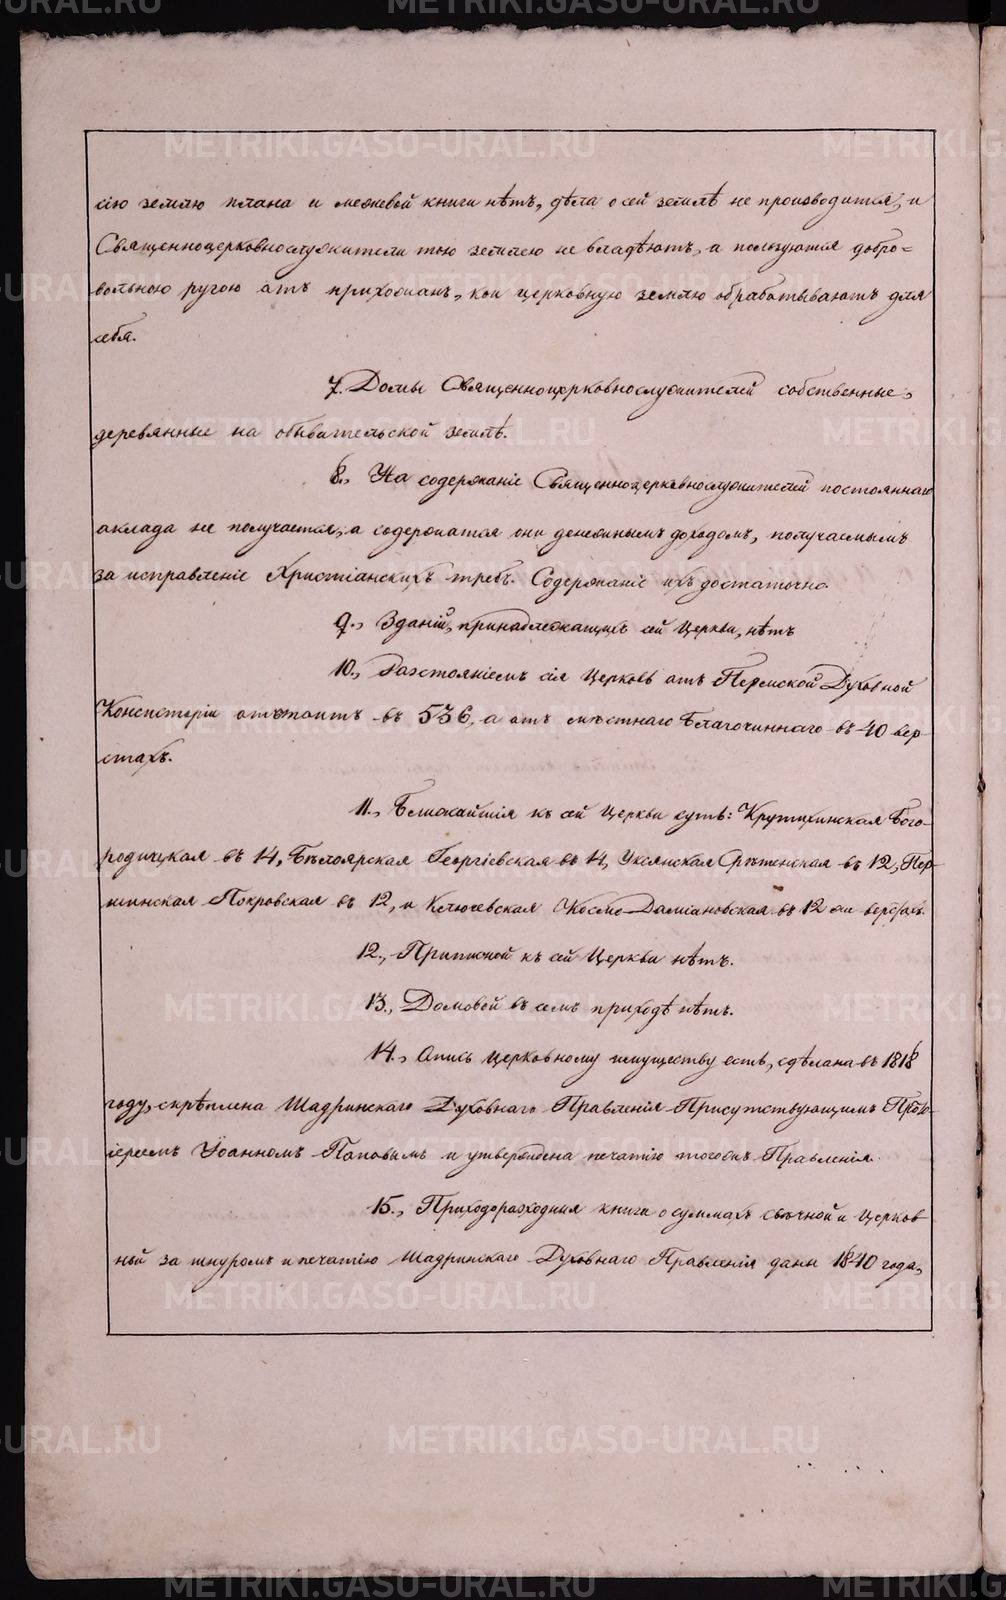 сію землю плана и межевой книги нѣтъ, дѣла о сей землѣ не производится, и
Священноцерковнослужители тою землею не владѣютъ, а пользуются добро=
вольною ругою отъ прихожанъ, кои церковную землю обработываютъ для
себя.
7. Домы Священноцерковнослужителей собственные,
деревянные на обывательской землѣ.
8., На содержаніе Священноцерковнослужителей постояннаго
оклада не получается, а содержатся они денежнымъ доходомъ, получаемымъ
за исправленіе Христіанскихъ требъ. Содержаніе ихъ достаточно.
9., Зданій, принадлежащихъ сей Церкви, нѣтъ
10., Разстояніемъ сія Церковь отъ Пермской Духовной
Консисторіи отстоитъ въ 536, а отъ мѣстнаго Благочиннаго въ 40 вер-
стахъ.
11., Ближайшія къ сей Церкви суть: Крутихинская Бого-
родицкая въ 14, Бѣлоярская Георгіевская въ 14, Уксянская Срѣтенская въ 12, Пер-
шинская Покровская въ 12, и Ключевская Космо-Даміановская въ 12 ти верстахъ.
12., Приписной къ сей Церкви нѣтъ.
13., Домовой въ семъ приходѣ нѣтъ.
14., Опись церковному имуществу есть, сдѣлана въ 1818
году, скрѣплена Шадринскаго Духовнаго Правленія Присутствующимъ Прото-
іереемъ Іоанномъ Поповымъ и утверждена печатію тогожъ Правленія.
15., Приходорасходныя книги о суммахъ свѣчной и Церков
ной за шнуромъ и печатію Шадринскаго Духовнаго Правленія даны 1840 года,
METRIKI.GASO-URAL.RU